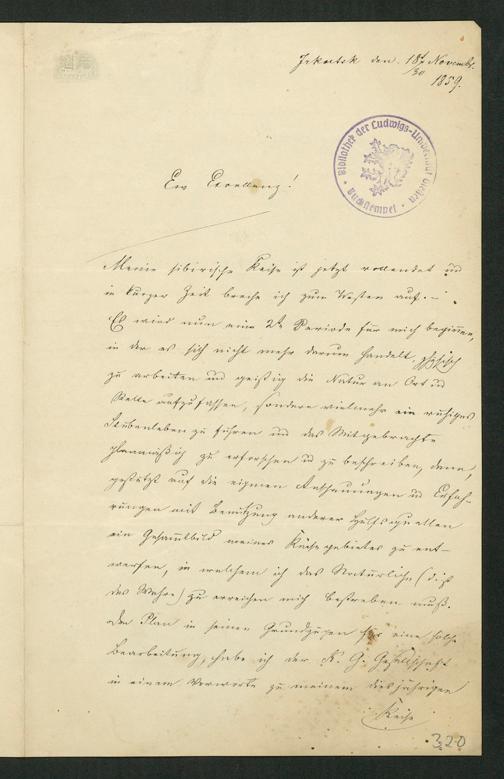 Irkutsk den 18/30 Novembr.
1859.
Bibliothek der Ludwigs-Universität Giessen
Buchstempel
Ew Excellenz!
Meine sibirische Reise ist jetzt vollendet und
in kurzer Zeit breche ich zum Westen auf. –
Es wird nun eine 2te Periode für mich beginnen,
in der es sich nicht mehr darum handelt, physisch
zu arbeiten und geistig die Natur an Ort und
Stelle aufzufassen, sondern vielmehr ein ruhiges
Stubenleben zu führen und das Mitgebrachte
planmäßig zu erforschen u zu beschreiben, dann,
gestützt auf die eignen Anschauungen und Erfah-
rungen mit Benützung anderer Hülfsquellen
ein Gesammtbild meines Reisegebietes zu ent-
werfen, in welchem ich das Natürliche (dies
das Wahre) zu erreichen mich bestreben muß.
Den Plan in seinen Grundzügen für eine solche
Bearbeitung, habe ich der K. G. Gesellschaft
in einem Vorworte zu meinem diesjährigen
Reise
320